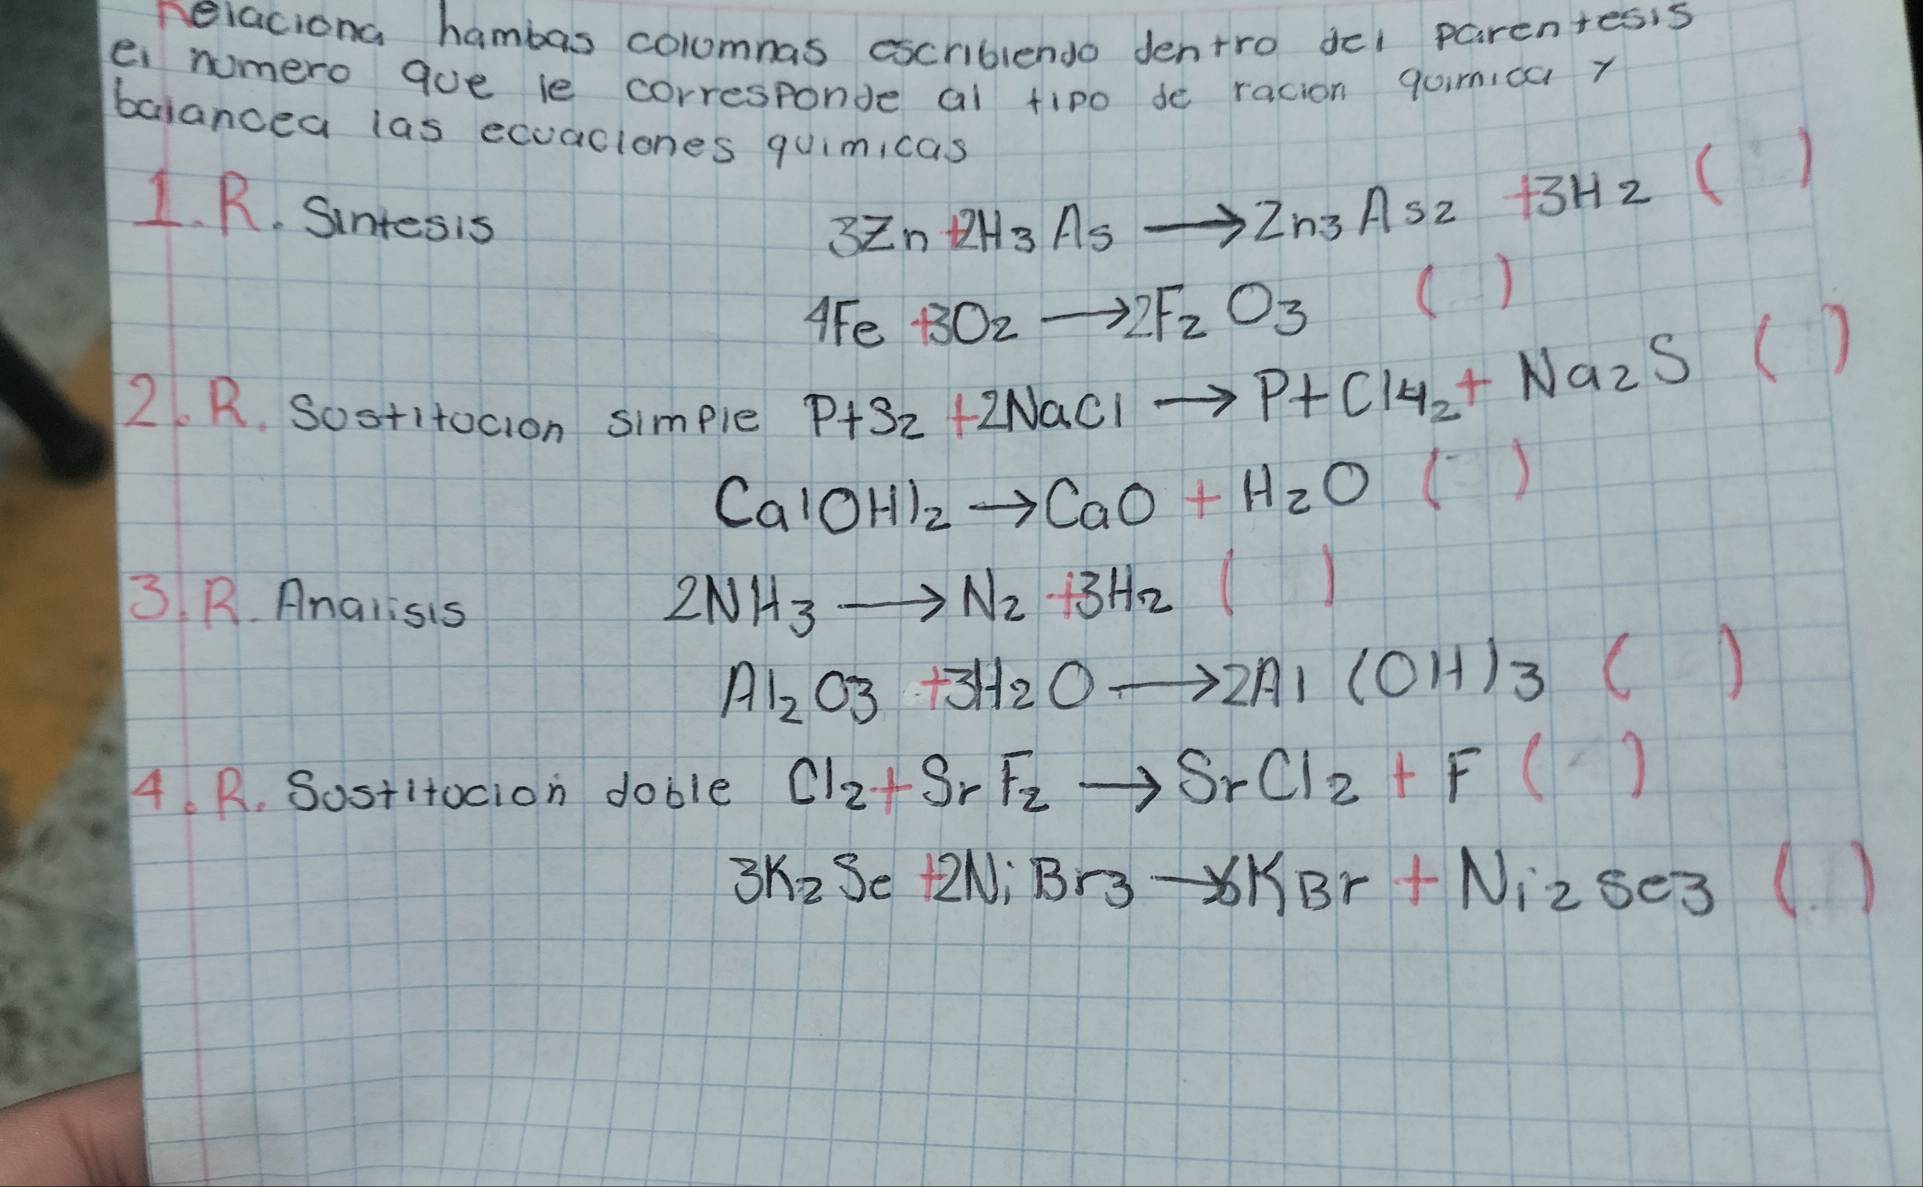 Relaciona hambas columnas escribiendo dentro del parentesis
el numero que le corresponde al tipo de racion quimica y
balancea las ecuaciones quimicas
1. R. Sintesis 3Zn + 2H3 As → Zn3 As2 + 3H2 ( )
4Fe + 3O2 → 2F2 O3 ( )
2. R. Sustitucion simple PtS2 + 2NaCl → PtCl42 + Na2S ( )
Ca(OH)2 → CaO + H2O ( )
3. R. Analisis 2NH3 → N2 + 3H2 ( )
Al2O3 + 3H2O → 2Al (OH)3 ( )
4. R. Sustitucion doble Cl2 + SrF2 → SrCl2 + F ( )
3K2Se + 2NiBr3 → 6KBr + Ni2Se3 ( )